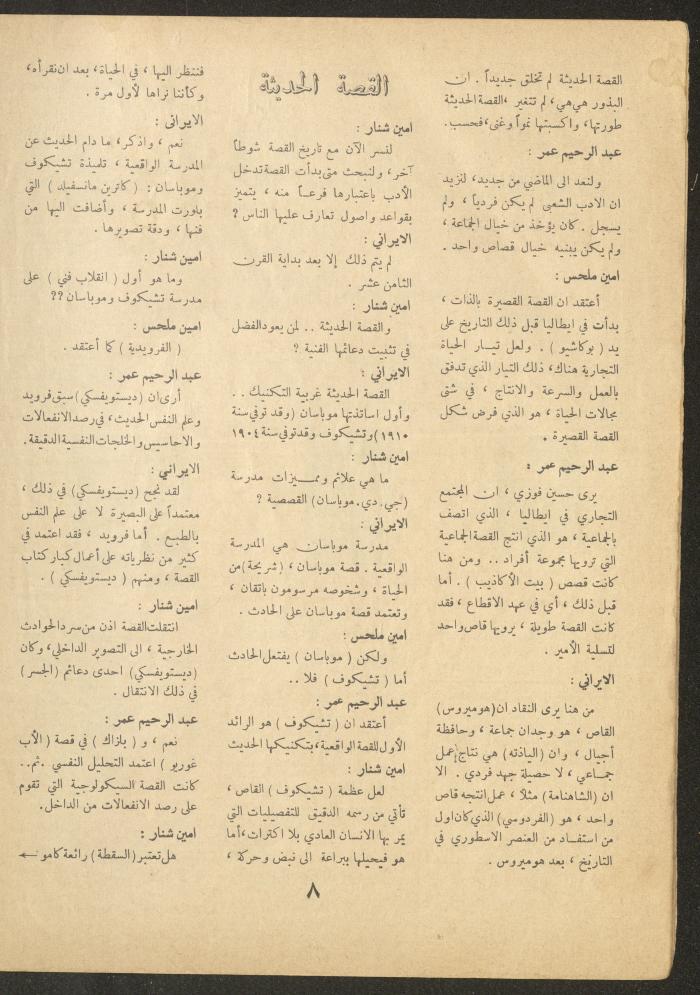 القصة الحديثة لم تخلق جديداً . ان
البذور هي هي، لم تتغير ، القصة الحديثة
طورتها، واكسبتها نمواً وغنى، فحسب.
عبد الرحيم عمر :
ولنعد الى الماضي من جديد، لنزيد
ان الادب الشعبي لم يكن فردياً ، ولم
يسجل . كان يؤخذ من خيال الجماعة ،
ولم يكن يبنيه خيال قصاص واحد .
امين ملحس :
أعتقد ان القصة القصيرة بالذات ،
بدأت في ايطاليا قبل ذلك التاريخ على
يد ( بوكاشيو ) . ولعل تيار الحياة
التجارية هناك، ذلك التيار الذي تدفق
بالعمل والسرعة والانتاج ، في شتى
مجالات الحياة ، هو الذي فرض شكل
القصة القصيرة .
عبد الرحيم عمر :
يرى حسين فوزي ، ان المجتمع
التجاري في ايطاليا ، الذي اتصف
بالجماعية ، هو الذي انتج القصة الجماعية
التي ترويها مجموعة أفراد .. ومن هنا
كانت قصص ( بيت الأكاذيب ) . أما
قبل ذلك ، أي في عهد الاقطاع ، فقد
كانت القصة طويلة ، يرويها قاص واحد
لتسلية الأمير .
الايراني :
من هنا يرى النقاد ان (هوميروس)
القاص ، هو وجدان جماعة ، وحافظة
أجيال ، وان (الياذته) هي نتاج عمل
جماعي ، لا حصيلة جهد فردي . الا
ان (الشاهنامة) مثلاً ، عمل انتجه قاص
واحد ، هو (الفردوسي) الذي كان اول
من استفاد من العنصر الاسطوري في
التاريخ ، بعد هوميروس .
القصة الحديثة
امين شنار :
لنسر الآن مع تاريخ القصة شوطاً
آخر، ولنبحث متى بدأت القصة تدخل
الأدب باعتبارها فرعاً منه ، يتميز
بقواعد واصول تعارف عليها الناس ؟
الايراني :
لم يتم ذلك إلا بعد بداية القرن
الثامن عشر .
امين شنار :
والقصة الحديثة .. لمن يعود الفضل
في تثبيت دعائمها الفنية ؟
الايراني :
القصة الحديثة غربية التكنيك ..
وأول اساتذتها موباسان (وقد توفي سنة
١٩١٠) وتشيكوف وقد توفي سنة ١٩٠٤
امين شنار :
ما هي علائم ومميزات مدرسة
(جي. دي. موباسان) القصصية ؟
الايراني :
مدرسة موباسان هي المدرسة
الواقعية . قصة موباسان ، (شريحة) من
الحياة ، وشخوصه مرسومون باتقان ،
وتعتمد قصة موباسان على الحادث .
امين ملحس :
ولكن ( موباسان ) يفتعل الحادث
أما ( تشيكوف ) فلا ..
عبد الرحيم عمر :
أعتقد ان ( تشيكوف ) هو الرائد
الأول للقصة الواقعية، بتكنيكها الحديث
امين شنار :
لعل عظمة ( تشيكوف ) القاص ،
تأتي من رسمه الدقيق للتفصيلات التي
يمر بها الانسان العادي بلا اكتراث، أما
هو فيحيلها ببراعة الى نبض وحركة ،
فننظر اليها ، في الحياة، بعد ان نقرأه،
وكأننا نراها لأول مرة .
الايراني :
نعم ، واذكر، ما دام الحديث عن
المدرسة الواقعية ، تلميذة تشيكوف
وموباسان : ( كاترين مانسفيلد ) التي
بلورت المدرسة ، وأضافت اليها من
فنها ، ودقة تصويرها .
امين شنار :
وما هو أول ( انقلاب فني ) على
مدرسة تشيكوف وموباسان ؟؟
امين ملحس :
( الفرويدية ) كما أعتقد .
عبد الرحيم عمر :
أرى ان ( ديستويفسكي) سبق فرويد
وعلم النفس الحديث، في رصد الانفعالات
والاحاسيس والخلجات النفسية الدقيقة.
الايراني :
لقد نجح (ديستويفسكي) في ذلك ،
معتمداً على البصيرة لا على علم النفس
بالطبع . أما فرويد ، فقد اعتمد في
كثير من نظرياته على أعمال كبار كتاب
القصة ، ومنهم ( ديستويفسكي ) .
امين شنار :
انتقلت القصة اذن من سرد الحوادث
الخارجية ، الى التصوير الداخلي، وكان
(ديستويفسكي) احدى دعائم (الجسر)
في ذلك الانتقال .
عبد الرحيم عمر :
نعم ، و ( بلزاك ) في قصة ( الأب
غوريو ) اعتمد التحليل النفسي . ثم..
كانت القصة السيكولوجية التي تقوم
على رصد الانفعالات من الداخل.
امين شنار :
هل تعتبر (السقطة) رائعة كامو ←
٨